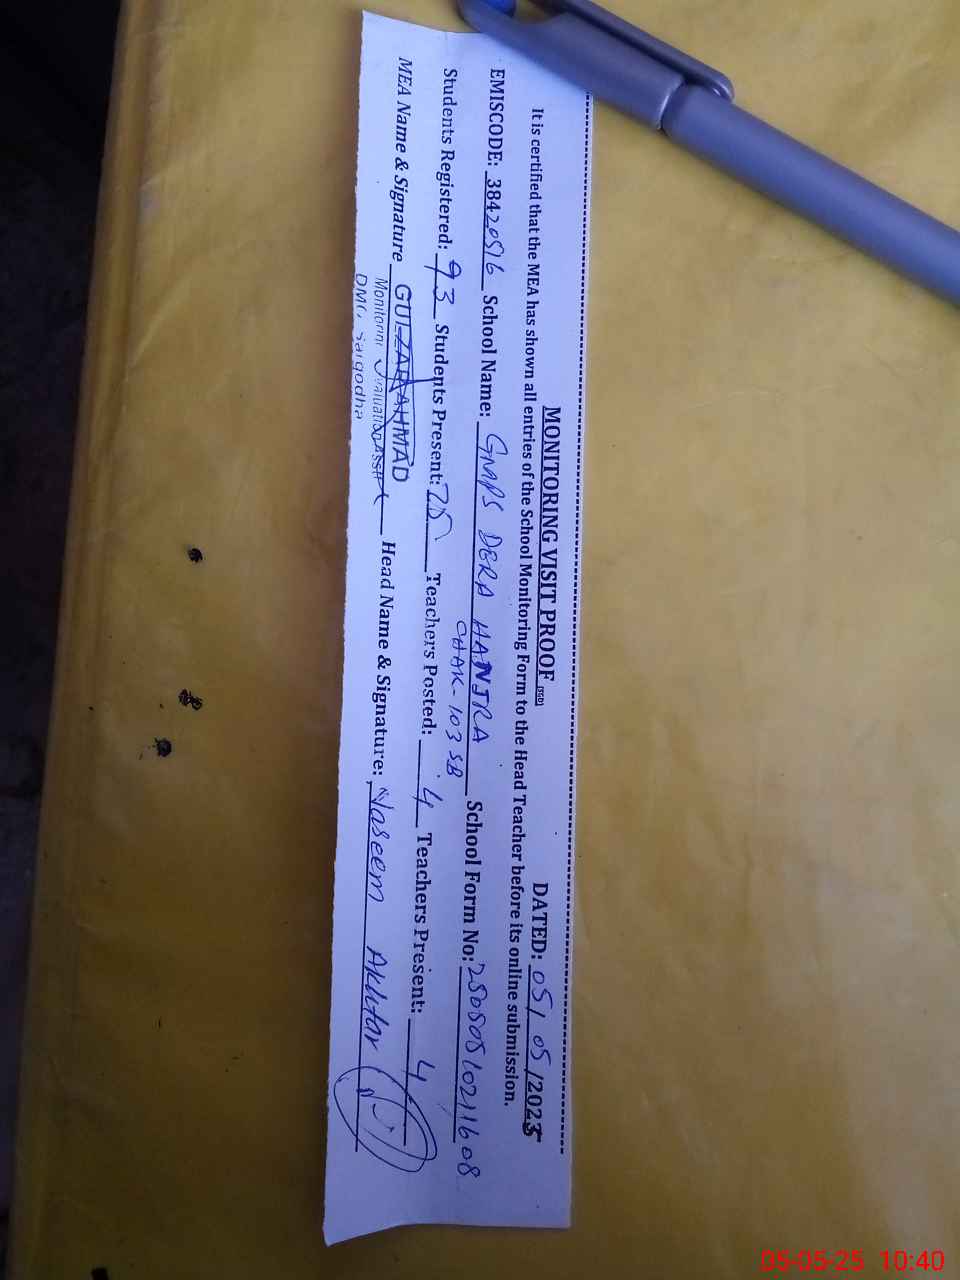 MONITORING VISIT PROOF (SGD) DATED: 05/05/2025
It is certified that the MEA has shown all entries of the School Monitoring Form to the Head Teacher before its online submission.
EMISCODE: 38420516 School Name: GMPS DERA HANJRA CHAK-103 SB School Form No: 25050510211608
Students Registered: 93 Students Present: 75 Teachers Posted: 4 Teachers Present: 4
MEA Name & Signature GULZAR AHMAD Head Name & Signature: Naseem Akhtar
Monitoring
DMO, Sargodha
05-05-25 10:40